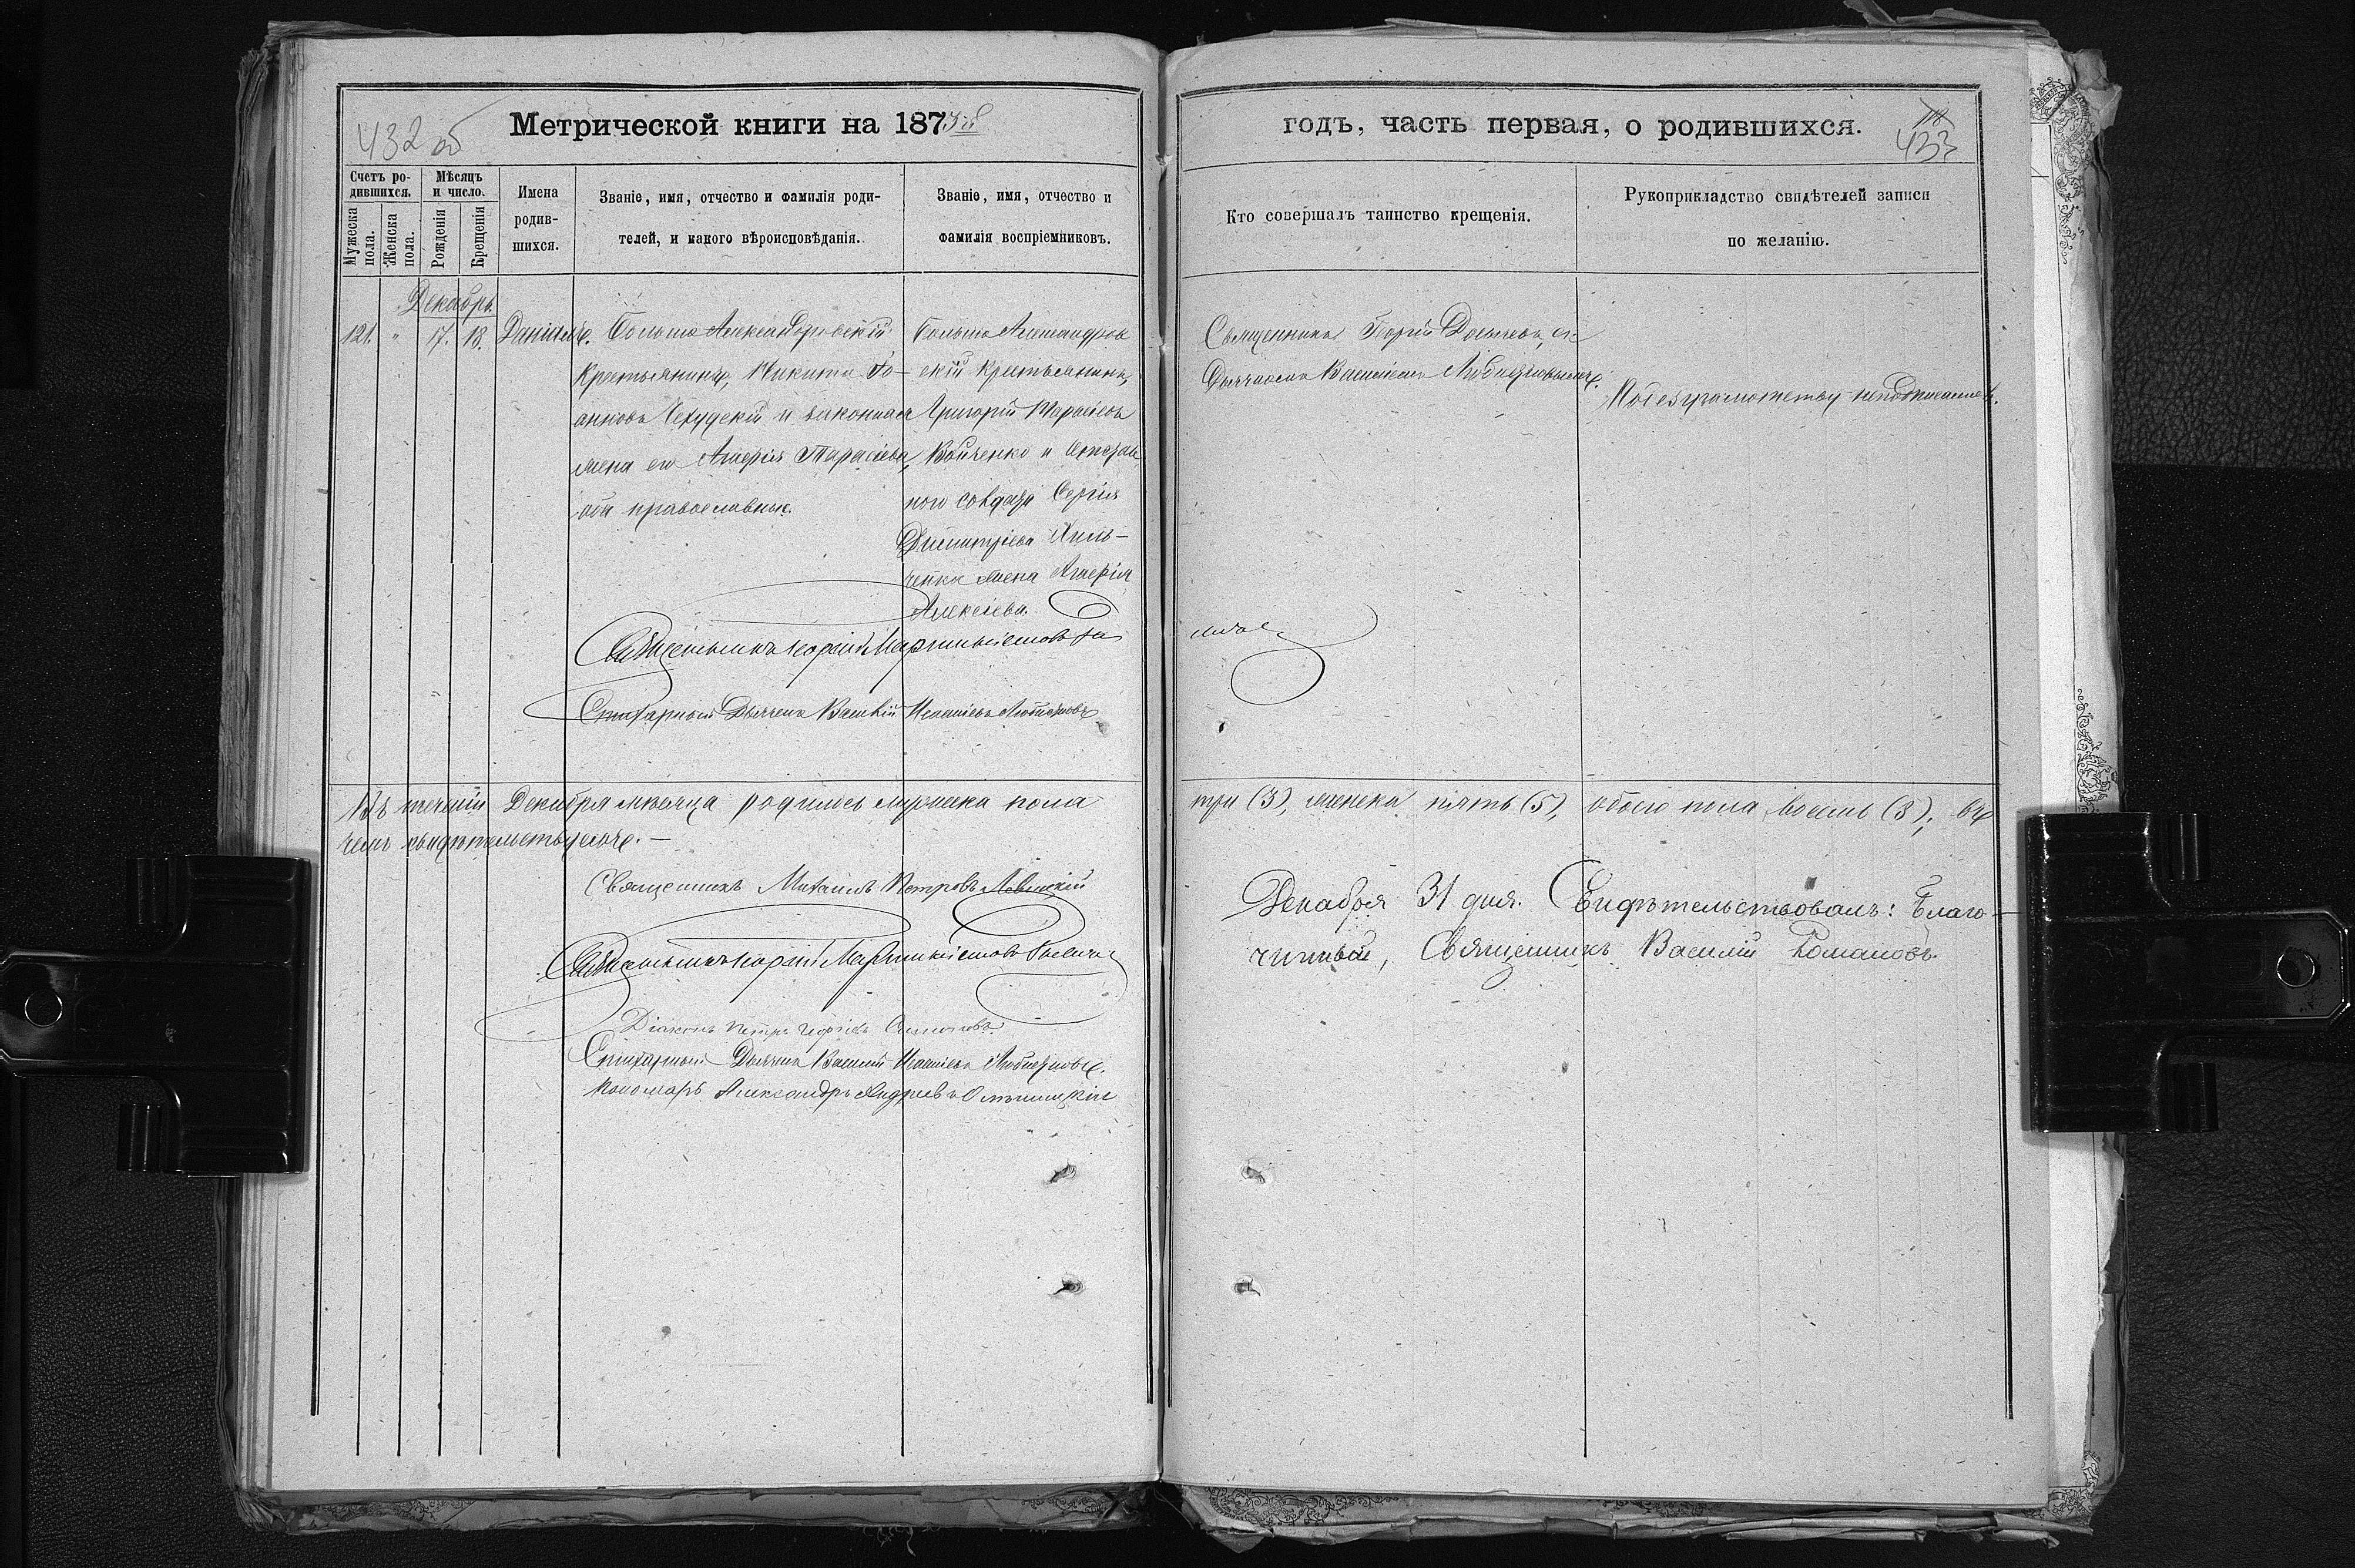 432 об
Метрической книги на 1873й
годъ, часть первая, о родившихся.
433
Счетъ ро-
дившихся.
Мѣсяцъ
и число.
Мужеска
пола.
Женска
пола.
Рожденія
Крещенія
Имена
родив-
шихся.
Званіе, имя, отчество и фамилія роди-
телей, и какого вѣроисповѣданія.
Званіе, имя, отчество и
фамилія воспріемниковъ.
Кто совершалъ таинство крещенія.
Рукоприкладство свидѣтелей записи
по желанію.
Декабрь
121. " 17. 18. Даніилъ.
Больше Александровскій
крестьянинъ, Никита Іо-
анновъ и законная
жена его Агафія Тарасіева,
оба православные.
Больше Александров
скій крестьянинъ,
Григорій Тарасіевъ
Войченко и
ного солдата Сергія
Димитріева
жена Агафія
Алексіева.
Священникъ Георгій
Дьячкомъ Василіемъ Любицкимъ.
По безграмотству неподписались.
Священникъ Георгій
Стихарный Дьячекъ Василій
Въ теченіи Декабря мѣсяца родилось мужеска пола
три (3), женска пять (5), обоего пола восемь (8); въ
чемъ свидѣтельствуемъ. —
Священникъ Михаилъ Петровъ Левицкій
Священникъ Георгій
Діаконъ Петръ Георгіевъ
Стихарный Дьячекъ Василій
Пономарь Александръ Андреевъ
Декабря 31 дня. Свидѣтельствовалъ: Благо-
чинный, Священникъ Василій Романовъ.